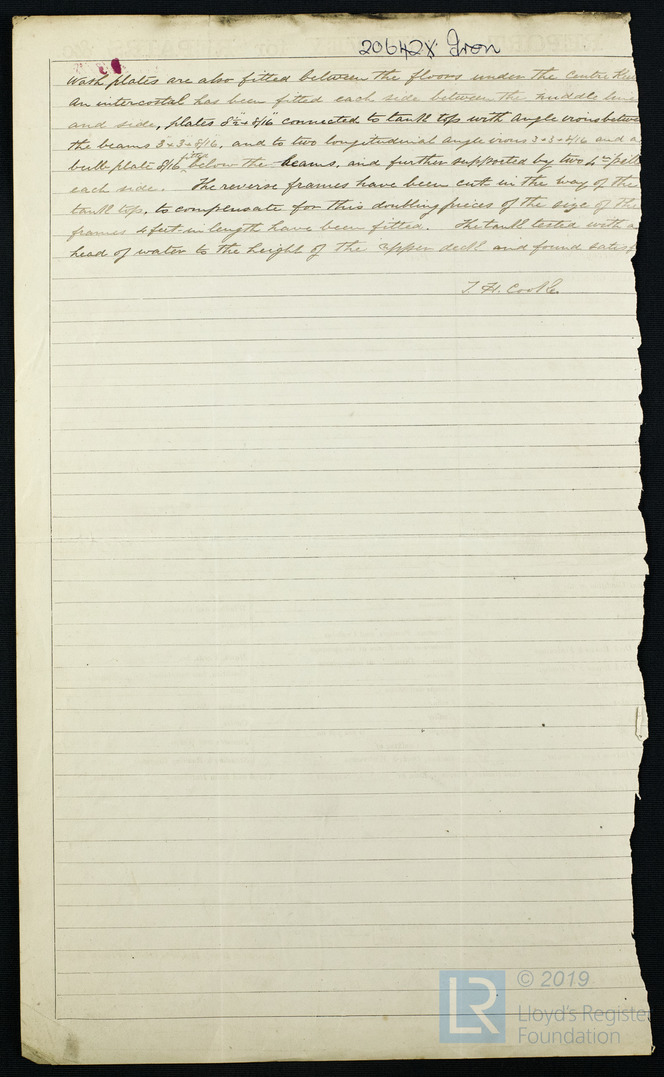 20642x Iron
Wash plates are also fitted between the floors under the Centre
An intercostal has been fitted each side between the middle line
and side, plates 8/16" connected to tank top with angle irons betwe
the beams 3+3+8/16, and to two longitudinal angle irons 3+3+8/16 and a
bulb plate 8/16 below the beams, and further supported by two 4"
each side. The reverse frames have been cut in the way of the
tank top, to compensate for this doubling pieces of the size of the
frames 4 feet in length have been fitted. The tank tested with a
head of water to the height of the upper deck and found satisf
T. H. Cooke.
LR © 2019
Lloyd's Register
Foundation